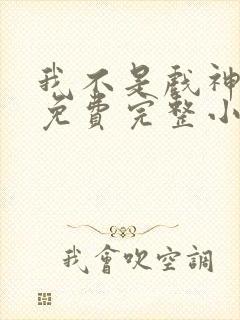 我不是戲神
免費完整小
我會吹空調